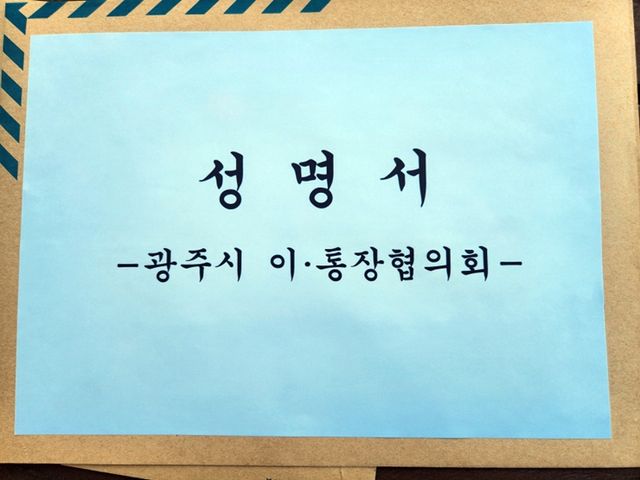 성 명 서
-광주시 이·통장협의회-